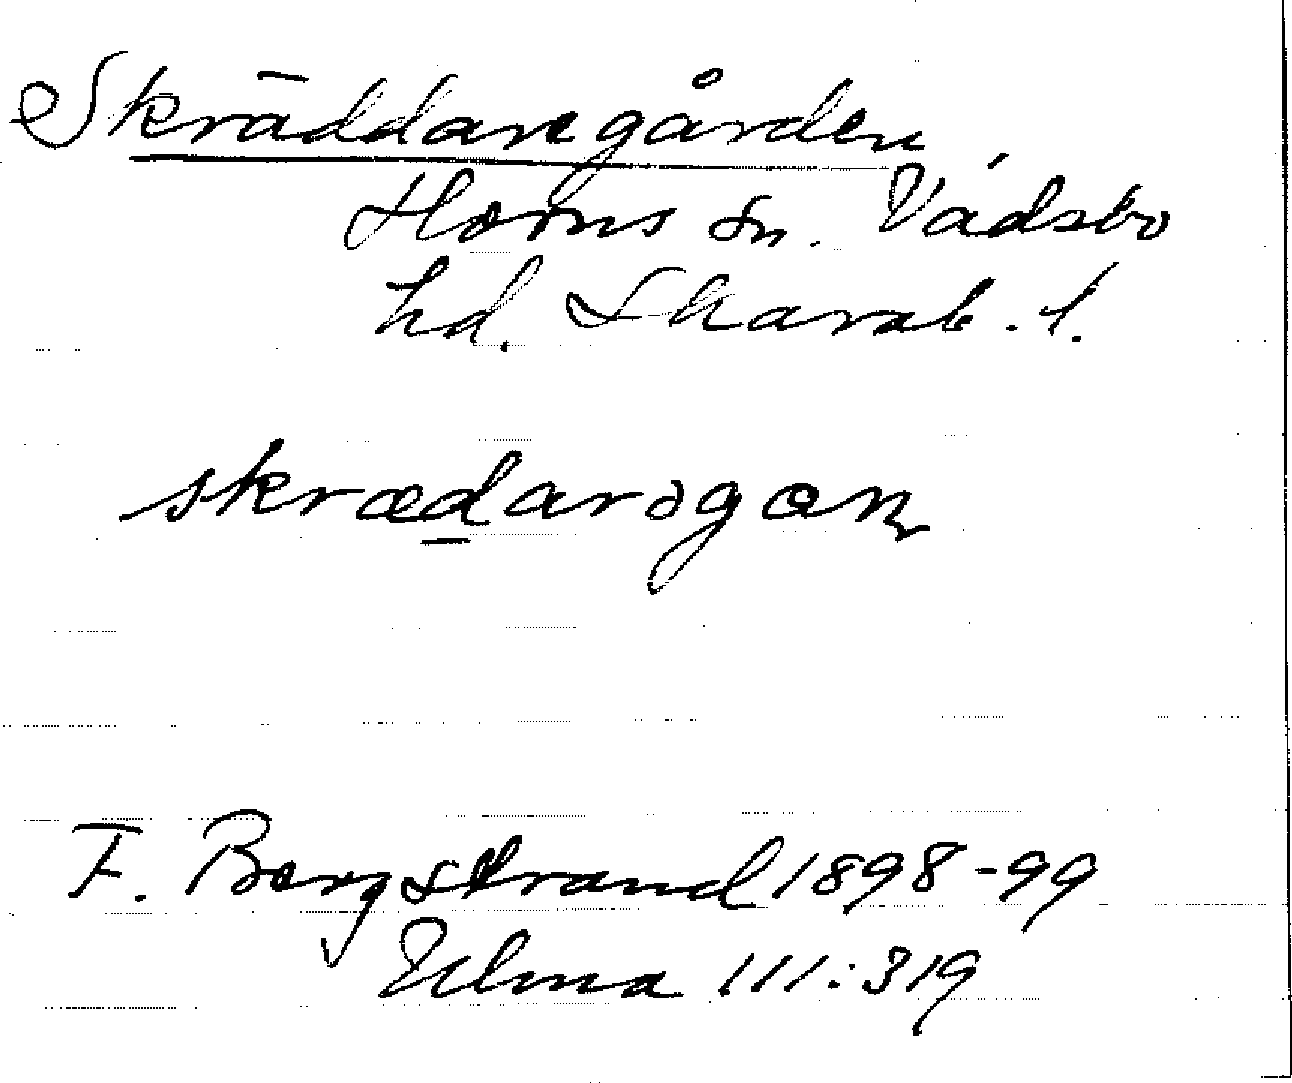 Skräddaregården,
Horns sn. Vadsbo
hd. Skarab. l.
skrædarogan
F. Bergstrand 1898-99
Ulma 111:319